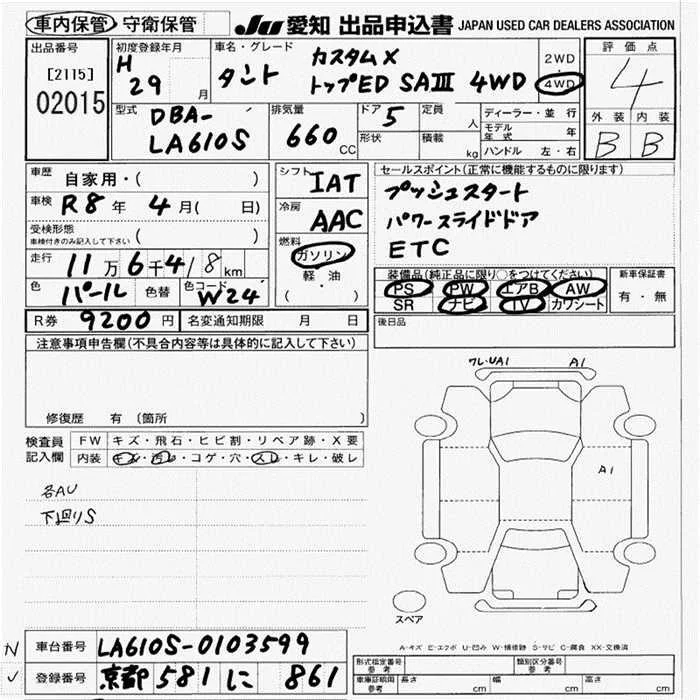 車内保管 ・ 守衛保管 JU 愛知 出品申込書 JAPAN USED CAR DEALERS ASSOCIATION
出品番号 初度登録年月 車名・グレード 2WD 4WD 評価点
[2115] H 29 月 タント カスタムX 4
02015 トップED SAⅢ 4WD
型式 排気量 ドア 定員 ディーラー・並行 外装 内装
DBA-LA610S 660 CC 5 人 モデル年式 年 B B
形状 積載 kg ハンドル 左・右
車歴 自家用・( ) シフト IAT セールスポイント(正常に機能するものに限ります)
車検 R8年 4月( 日) 冷房 AAC プッシュスタート
受検形態 車検付きのみ記入して下さい ( ) 燃料 パワースライドドア
走行 11万6千418km ガソリン ETC
色 パール 色替 色コード W24 軽・油 ( ・ )
装備品(純正品に限り○をつけてください) 新車保証書
PS PW エアB AW 有・無
SR ナビ TV カワシート
R券 9200円 名変通知期限 月 日 後日品
注意事項申告欄(不具合内容等は具体的に記入して下さい)
修復歴 有 (箇所 )
検査員記入欄 FW キズ・飛石・ヒビ割・リペア跡・X要
内装 キズ・汚レ・コゲ・穴・スレ・キレ・破レ
ワレ・UA1 A1
A1
各AU
下廻りS
スペア
A-キズ E-エクボ U-凹み W-補修跡 S-サビ C-腐食 XX-交換済
N 車台番号 LA610S-0103599
✓ 登録番号 京都 581 に 861
形式指定番号 参考 類別区分番号 参考
車庫証明用 参考 長さ cm 幅 cm 高さ cm